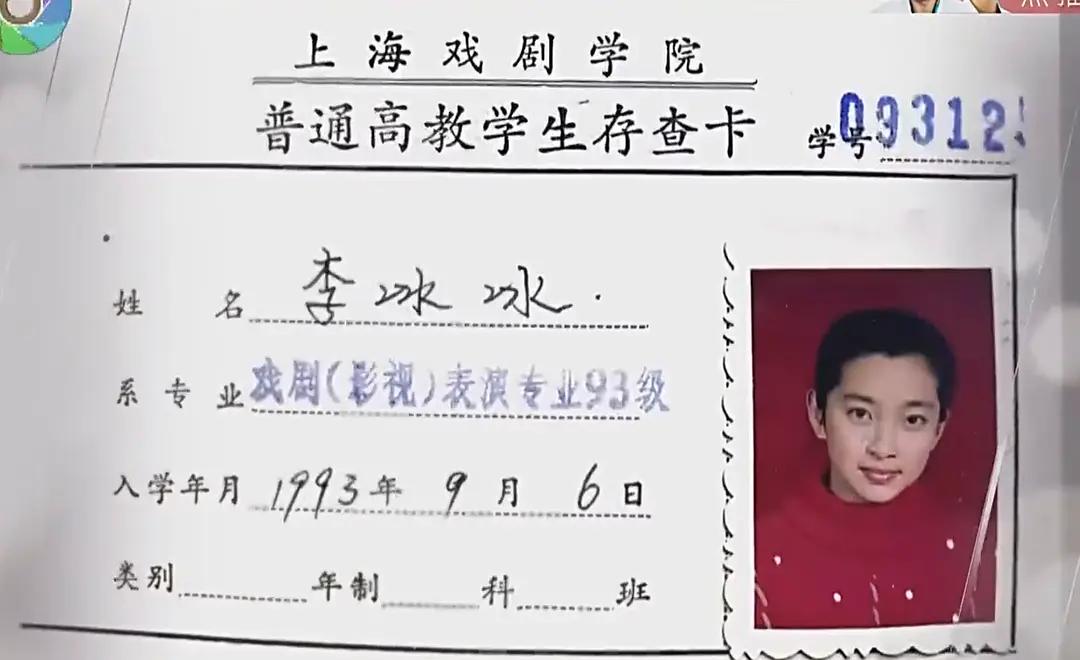 上海戏剧学院
普通高教学生存查卡
学号 09312
姓名 李冰冰
系专业 戏剧(影视)表演专业93级
入学年月 1993年9月6日
类别 年制 科 班